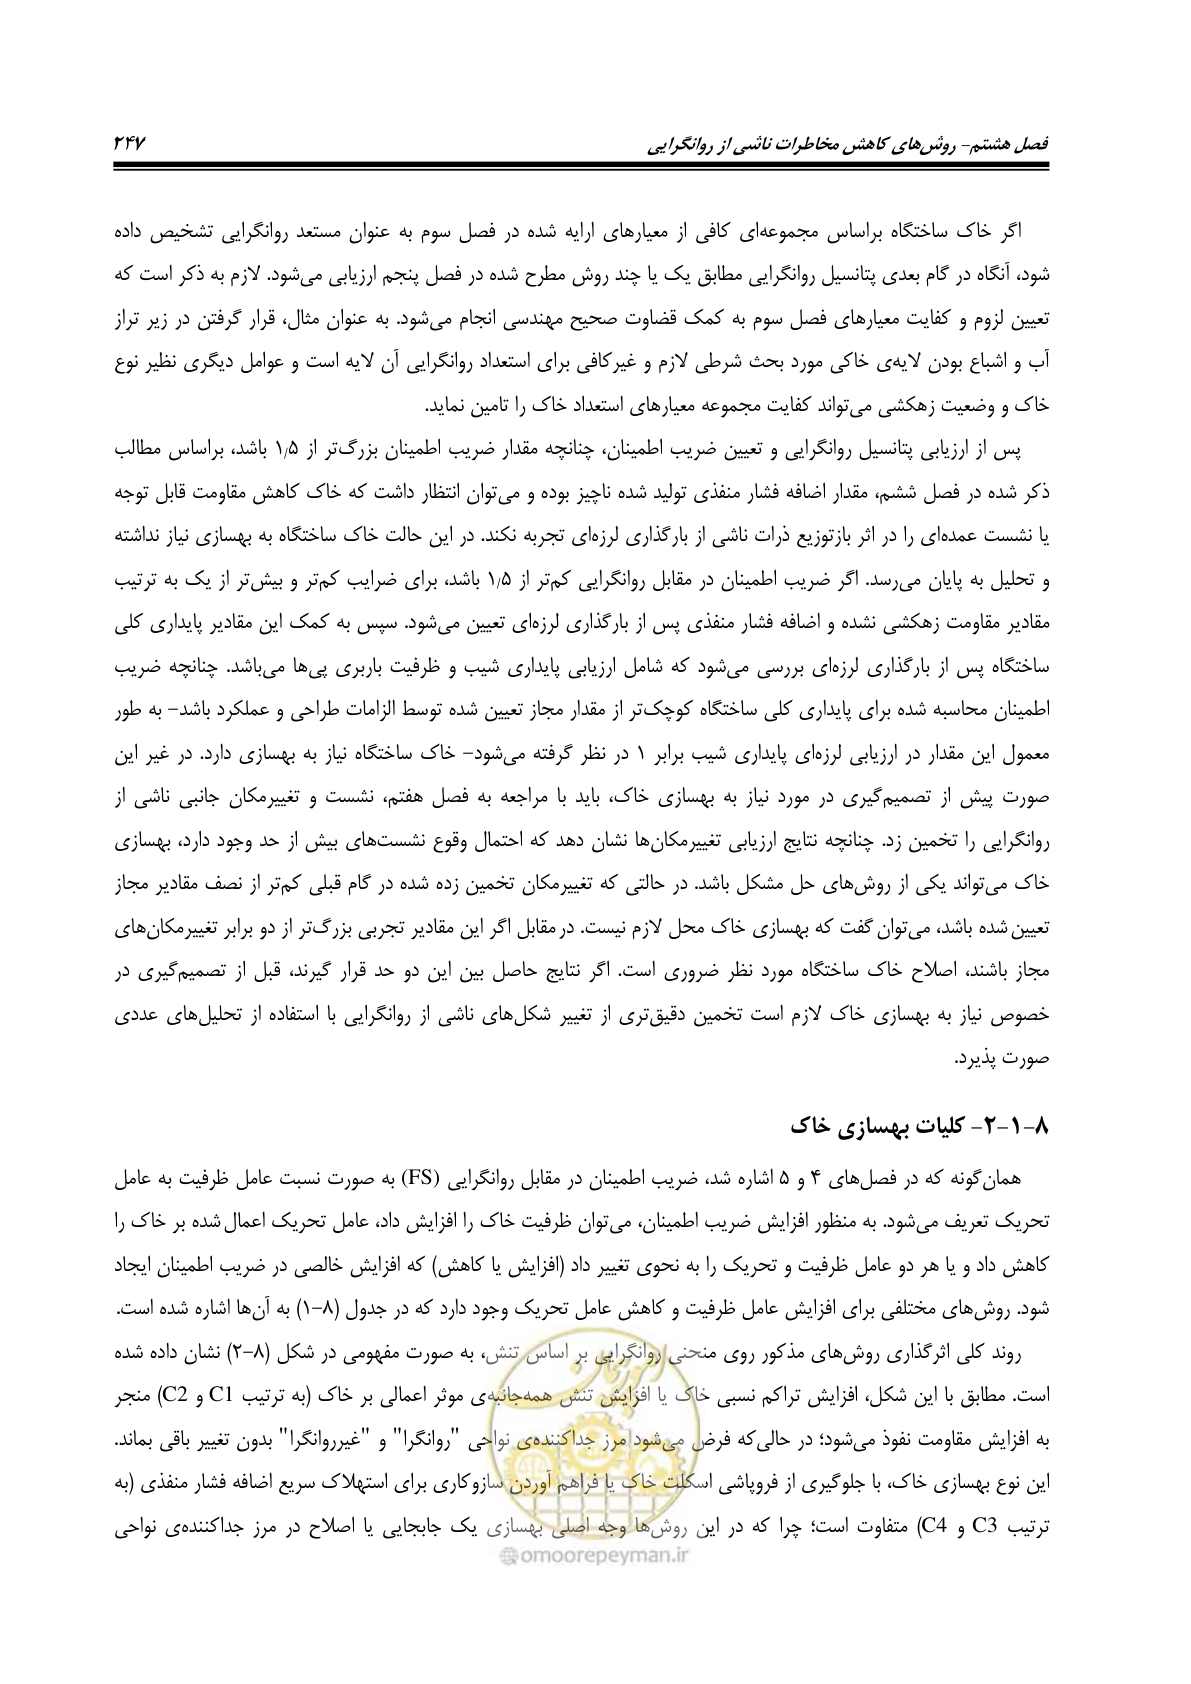 فصل هشتم- روش‌های کاهش مخاطرات ناشی از روانگرایی ۲۴۷
اگر خاک ساختگاه براساس مجموعه‌ای کافی از معیارهای ارایه شده در فصل سوم به عنوان مستعد روانگرایی تشخیص داده
شود، آنگاه در گام بعدی پتانسیل روانگرایی مطابق یک یا چند روش مطرح شده در فصل پنجم ارزیابی می‌شود. لازم به ذکر است که
تعیین لزوم و کفایت معیارهای فصل سوم به کمک قضاوت صحیح مهندسی انجام می‌شود. به عنوان مثال، قرار گرفتن در زیر تراز
آب و اشباع بودن لایه‌ی خاکی مورد بحث شرطی لازم و غیرکافی برای استعداد روانگرایی آن لایه است و عوامل دیگری نظیر نوع
خاک و وضعیت زهکشی می‌تواند کفایت مجموعه معیارهای استعداد خاک را تامین نماید.
پس از ارزیابی پتانسیل روانگرایی و تعیین ضریب اطمینان، چنانچه مقدار ضریب اطمینان بزرگ‌تر از ۱/۵ باشد، براساس مطالب
ذکر شده در فصل ششم، مقدار اضافه فشار منفذی تولید شده ناچیز بوده و می‌توان انتظار داشت که خاک کاهش مقاومت قابل توجه
یا نشست عمده‌ای را در اثر بازتوزیع ذرات ناشی از بارگذاری لرزه‌ای تجربه نکند. در این حالت خاک ساختگاه به بهسازی نیاز نداشته
و تحلیل به پایان می‌رسد. اگر ضریب اطمینان در مقابل روانگرایی کم‌تر از ۱/۵ باشد، برای ضرایب کم‌تر و بیش‌تر از یک به ترتیب
مقادیر مقاومت زهکشی نشده و اضافه فشار منفذی پس از بارگذاری لرزه‌ای تعیین می‌شود. سپس به کمک این مقادیر پایداری کلی
ساختگاه پس از بارگذاری لرزه‌ای بررسی می‌شود که شامل ارزیابی پایداری شیب و ظرفیت باربری پی‌ها می‌باشد. چنانچه ضریب
اطمینان محاسبه شده برای پایداری کلی ساختگاه کوچک‌تر از مقدار مجاز تعیین شده توسط الزامات طراحی و عملکرد باشد- به طور
معمول این مقدار در ارزیابی لرزه‌ای پایداری شیب برابر ۱ در نظر گرفته می‌شود- خاک ساختگاه نیاز به بهسازی دارد. در غیر این
صورت پیش از تصمیم‌گیری در مورد نیاز به بهسازی خاک، باید با مراجعه به فصل هفتم، نشست و تغییرمکان جانبی ناشی از
روانگرایی را تخمین زد. چنانچه نتایج ارزیابی تغییرمکان‌ها نشان دهد که احتمال وقوع نشست‌های بیش از حد وجود دارد، بهسازی
خاک می‌تواند یکی از روش‌های حل مشکل باشد. در حالتی که تغییرمکان تخمین زده شده در گام قبلی کم‌تر از نصف مقادیر مجاز
تعیین شده باشد، می‌توان گفت که بهسازی خاک محل لازم نیست. در مقابل اگر این مقادیر تجربی بزرگ‌تر از دو برابر تغییرمکان‌های
مجاز باشند، اصلاح خاک ساختگاه مورد نظر ضروری است. اگر نتایج حاصل بین این دو حد قرار گیرند، قبل از تصمیم‌گیری در
خصوص نیاز به بهسازی خاک لازم است تخمین دقیق‌تری از تغییر شکل‌های ناشی از روانگرایی با استفاده از تحلیل‌های عددی
صورت پذیرد.
۸-۱-۲- کلیات بهسازی خاک
همان‌گونه که در فصل‌های ۴ و ۵ اشاره شد، ضریب اطمینان در مقابل روانگرایی (FS) به صورت نسبت عامل ظرفیت به عامل
تحریک تعریف می‌شود. به منظور افزایش ضریب اطمینان، می‌توان ظرفیت خاک را افزایش داد، عامل تحریک اعمال شده بر خاک را
کاهش داد و یا هر دو عامل ظرفیت و تحریک را به نحوی تغییر داد (افزایش یا کاهش) که افزایش خالصی در ضریب اطمینان ایجاد
شود. روش‌های مختلفی برای افزایش عامل ظرفیت و کاهش عامل تحریک وجود دارد که در جدول (۸-۱) به آن‌ها اشاره شده است.
روند کلی اثرگذاری روش‌های مذکور روی منحنی روانگرایی بر اساس تنش، به صورت مفهومی در شکل (۸-۲) نشان داده شده
است. مطابق با این شکل، افزایش تراکم نسبی خاک یا افزایش تنش همه‌جانبه‌ی موثر اعمالی بر خاک (به ترتیب C1 و C2) منجر
به افزایش مقاومت نفوذ می‌شود؛ در حالی‌که فرض می‌شود مرز جداکننده‌ی نواحی "روانگرا" و "غیرروانگرا" بدون تغییر باقی بماند.
این نوع بهسازی خاک، با جلوگیری از فروپاشی اسکلت خاک یا فراهم آوردن سازوکاری برای استهلاک سریع اضافه فشار منفذی (به
ترتیب C3 و C4) متفاوت است؛ چرا که در این روش‌ها وجه اصلی بهسازی یک جابجایی یا اصلاح در مرز جداکننده‌ی نواحی
امور پیمان
@omoorepeyman.ir